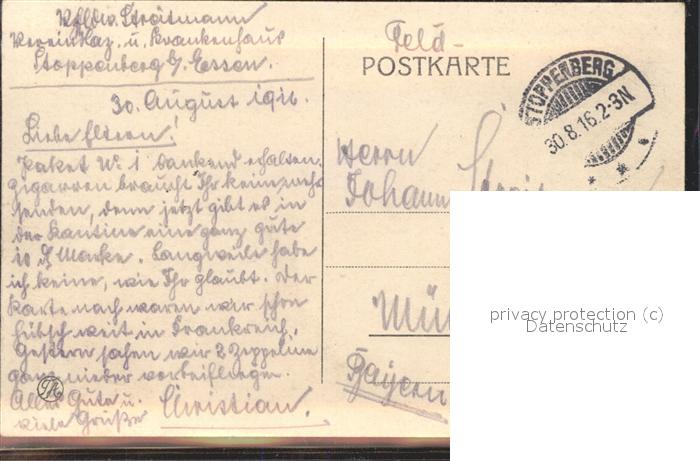 Kgldiv. Streitmann
Vereinslaz. u. Krankenhaus
Stoppenberg b/ Essen.
30. August 1916.
Liebe Eltern!
Paket № 1 dankend erhalten.
Zigarren braucht Ihr keine mehr
senden, denn jetzt gibt es in
der Kantine eine ganz gute
10 ₰ Marke. Langweile habe
ich keine, wie Ihr glaubt. Der
Karte nach waren wir schon
hübsch weit in Frankreich.
Gestern sahen wir 2 Zeppeline
ganz nieder vorbeifliegen.
Alles Gute u.
viele Grüße Christian.
Feld-
POSTKARTE
STOPPENBERG
30.8.16.2-3N
Herrn
Johann
Mün
Bayern
privacy protection (c)
Datenschutz